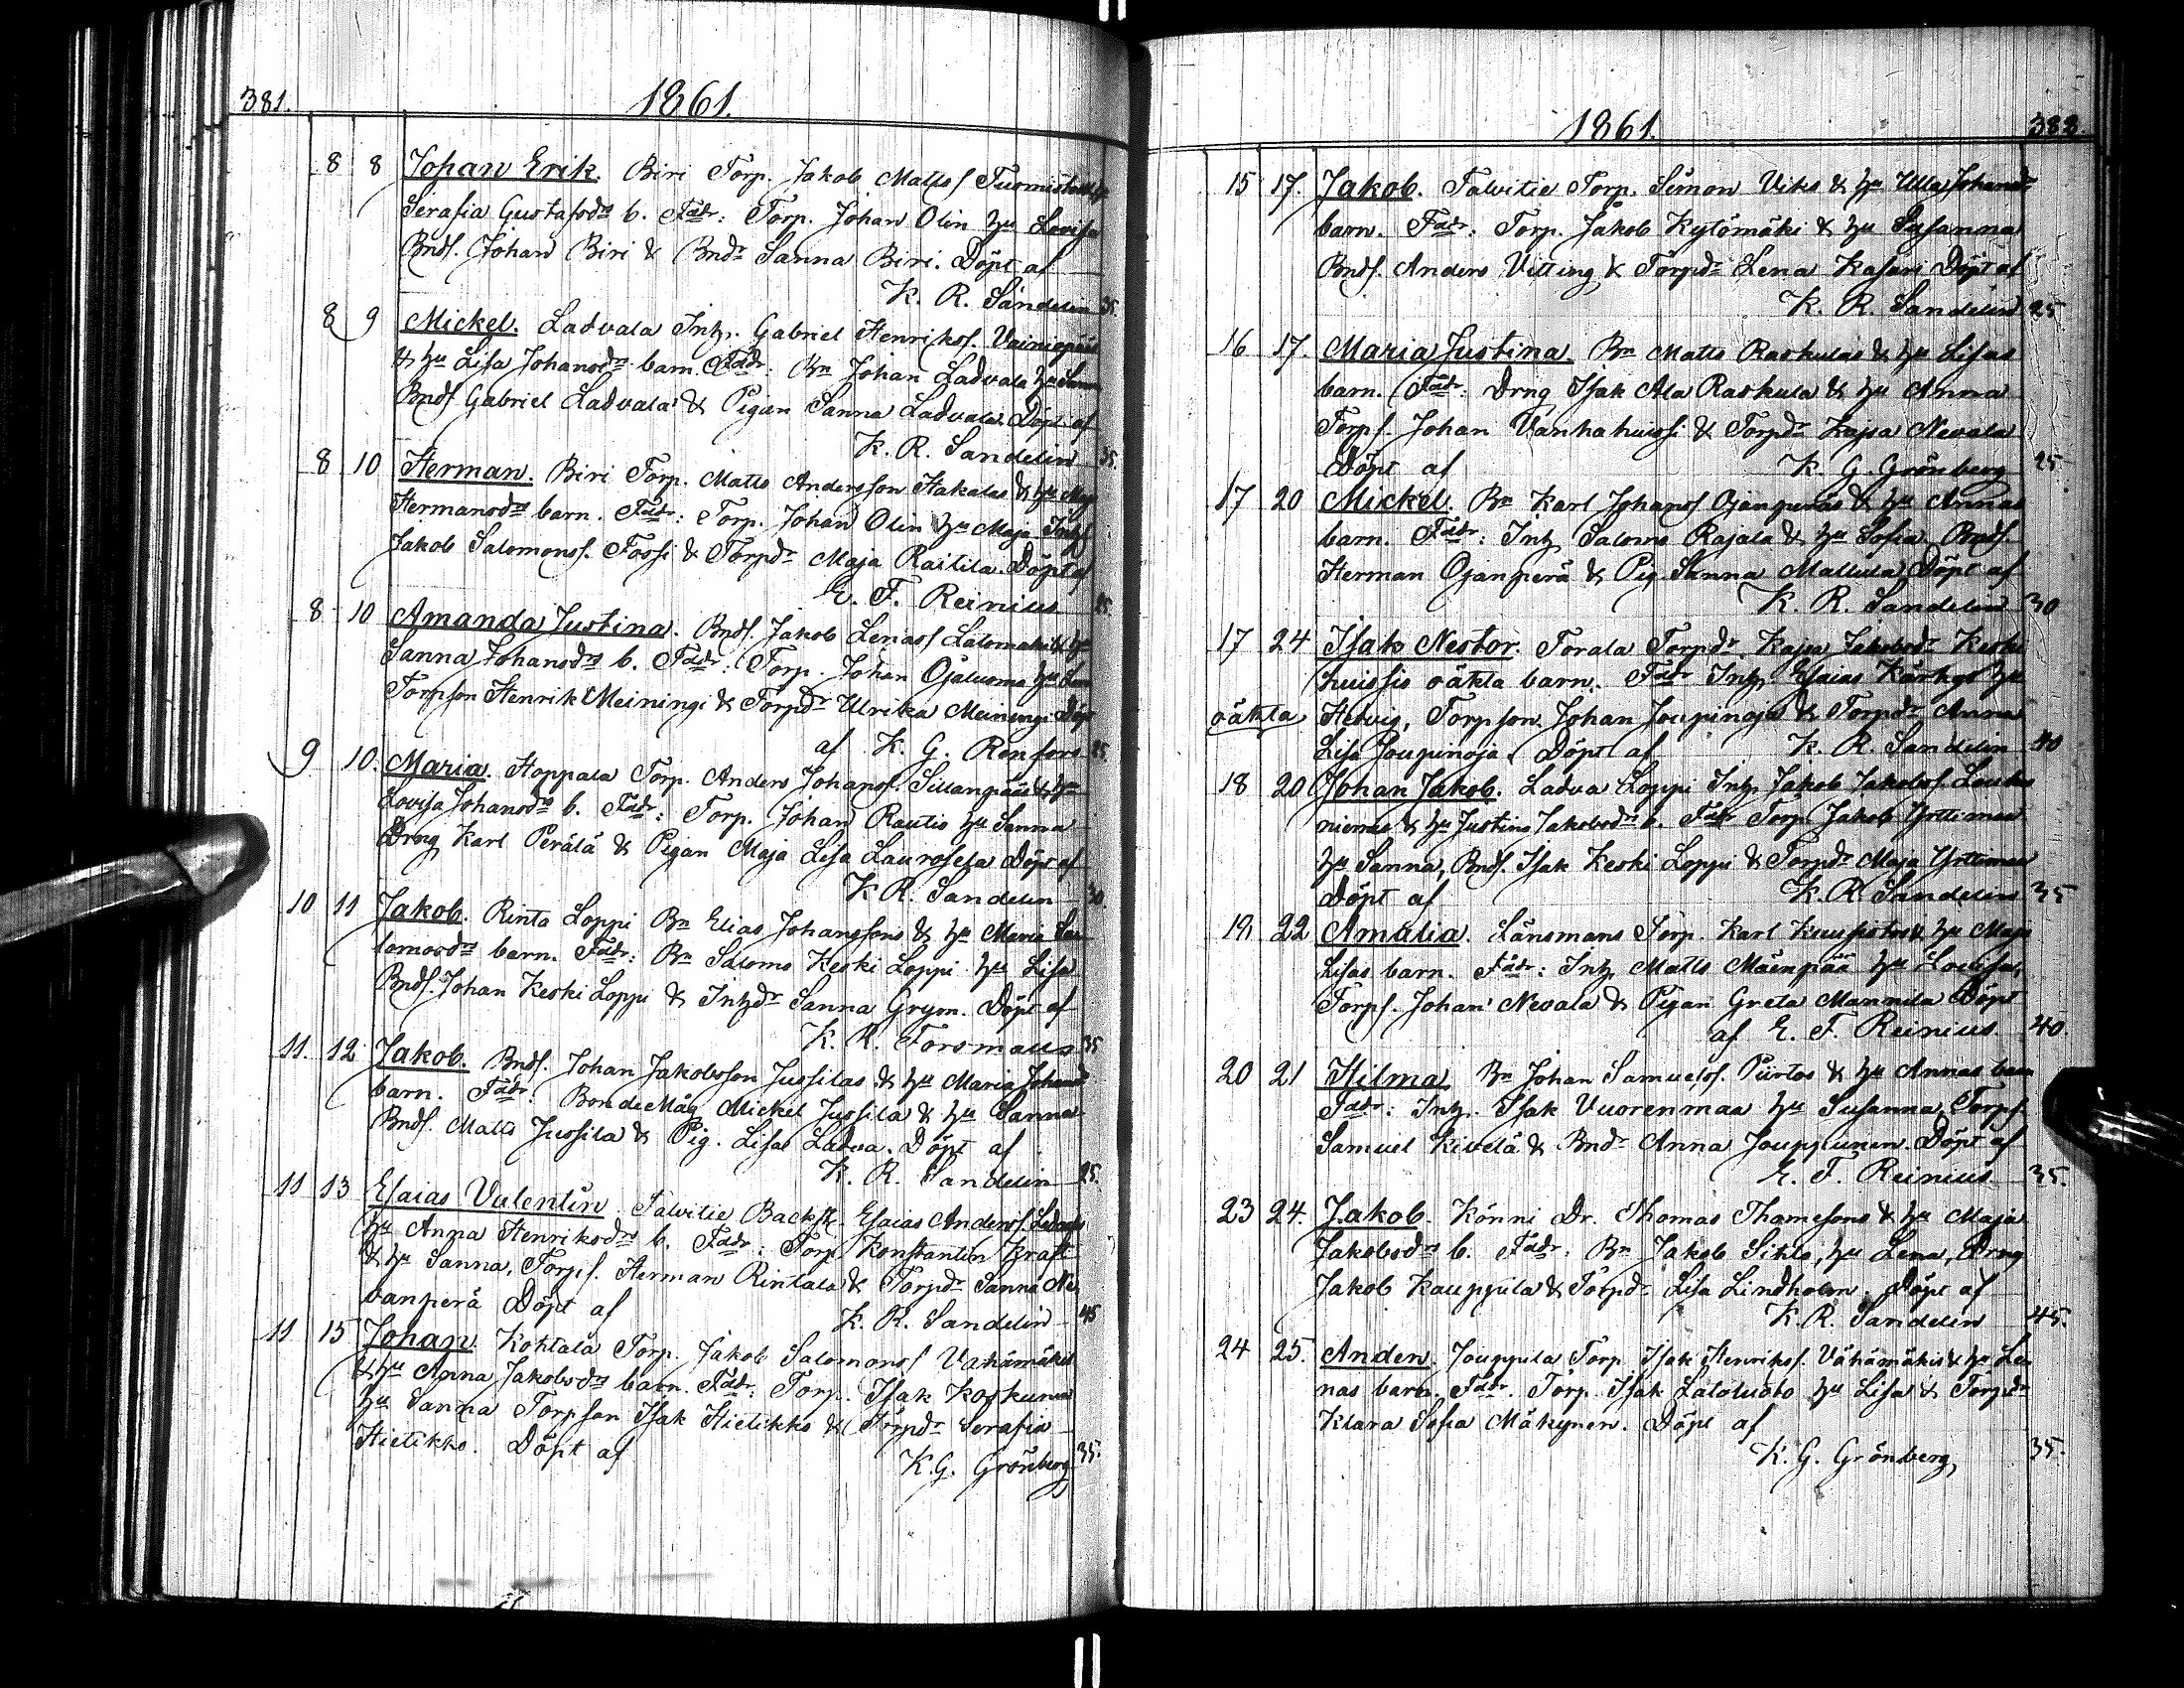 381. 1861.
8 8 Johan Erik. Biri Torp. Jakob Matts
Serafia Gustafsdrs b. Faddr: Torp. Johan Olin hu Lovisa
Bnds. Johan Biri & Bndr Sanna Biri. Döpt af
K. R. Sandelin 35.
8 9 Mickel. Ladvala Inh. Gabriel Henrikss. Vainiopääs
& hu Lisa Johansdrs barn. Faddr: Bn Johan Ladvala hu Sanna
Bnds. Gabriel Ladvala & Pigan Sanna Ladvala Döpt af
K. R. Sandelin 35.
8 10 Herman. Biri Torp. Matts Andersson Hakalas & hu Maja
Hermansdrs barn. Faddr: Torp. Johan Olin hu Maja Inhs
Jakob Salomonss. Fossi & Torpdr Maja Raitila. Döpt af
E. F. Reinius 25.
8 10 Amanda Justina. Bnds. Jakob Leniass Lalomäkis & hu
Sanna Johansdrs b. Faddr: Torp. Johan Ojaluoma hu
Torpson Henrik Meiningi & Torpdr Ulrika Meiningi Döpt
af K. G. Renfors 25.
9 10. Maria. Hoppala Torp. Anders Johanss. Sillanpääs & hu
Lovisa Johansdrs b. Faddr: Torp. Johan Rautio hu Sanna
Drng Karl Perälä & Pigan Maja Lisa Laurosela Döpt af
K. R. Sandelin 30.
10 11 Jakob. Rinta Loppi Bn Elias Johanssons & hu Maria Sa
lomosdrs barn. Faddr: Bn Salomo Keski Loppi hu Lisa
Bnds. Johan Keski Loppi & Inhdr Sanna Grym. Döpt af
K. R. Forsman 35
11. 12 Jakob. Bnds. Johan Jakobsson Jussilas & hu Maria Johansd
barn. Faddr: BondeMåg Mickel Jussila & hu Sanna
Bnds. Matts Jussila & Pig. Lisa Ladva. Döpt af
K. R. Sandelin 25.
11 13 Esaias Valentin. Talvitie Backst. Esaias Anderss.
hu Anna Henriksdrs b. Faddr: Torp. Konstantin Kraft
& hu Sanna, Torps. Herman Rintala & Torpdr Sanna Ne
vanperä Döpt af K. R. Sandelin 45
11 15 Johan. Kohtala Torp. Jakob Salomonss Vähämäkis
& hu Anna Jakobsdrs barn. Faddr: Torp. Isak Koskunen
hu Sanna Torpson Isak Hietikko & Torpdr Serafia
Hietikko. Döpt af
K. G. Grönberg 35.
1861. 388.
15 17. Jakob. Talvitie Torp. Simon Viks & hu Ulla Johansdrs
barn. Faddr: Torp. Jakob Kylömäki & hu Susanna
Bnds. Anders Vitting & Torpdr Lena Kasari Döpt af
K. R. Sandelin 25
16 17. Maria Justina. Bn Matts Raskulas & hu Lisas
barn. Faddr: Drng Isak Ala Raskula & hu Anna
Torps. Johan Vanhahuissi & Torpdr Kajsa Nevala
Döpt af K. G. Grönberg 25
17 20 Mickel. Bn Karl Johanss Ojanperäs & hu Annas
barn. Faddr: Inh Salomo Rajala & hu Sofia, Bnds.
Herman Ojanperä & Pig Sanna Mallula Döpt af
K. R. Sandelin 30
17 24 Isak Nestor. Torala Torpdr. Kajsa Jakobsdr Keski
huissis oäkta barn. Faddr Inh Esaias Kärkys hu
oäkta Hedvig, Torpson Johan Joupinoja & Torpdr Anna
Lisa Joupinoja. Döpt af K. R. Sandelin 40
18 20 Johan Jakob. Ladva Loppi Inh Jakob Jakobss. Louko
niemis & hu Justina Jakobsdrs b. Faddr Torp Jakob Yrttimaa
hu Sanna, Bnds. Isak Keski Loppi & Torpdr Maja Yrttimaa
Döpt af K. R. Sandelin 35
19 22 Amalia. Länsmans Torp. Karl Kuusistos & hu Maja
Lisas barn. Faddr: Inh Matts Mäenpää hu Lovisa,
Torps. Johan Nevala & Pigan Greta Mannila Döpt
af E. F. Reinius 40
20 21 Hilma Bn Johan Samuelss. Piirtos & hu Annas barn
Faddr: Inh. Isak Vuorenmaa hu Susanna, Torps
Samuel Kivelä & Bndr Anna Jouppunen. Döpt af
E. F. Reinius 35.
23 24. Jakob. Könni Dr. Thomas Thomesons & hu Maja
Jakobsdrs b. Faddr: Bn Jakob Sihto, hu Lena, Drng
Jakob Kauppila & Torpdr Lisa Lindholm. Döpt af
K. R. Sandelin 45.
24 25. Anders. Jouppila Torp Isak Henrikss. Vähämäkis & hu Le
nas barn. Faddr. Torp. Isak Laloluoto hu Lisa & Torpdr
Klara Sofia Mäkynen. Döpt af
K. G. Grönberg 35.